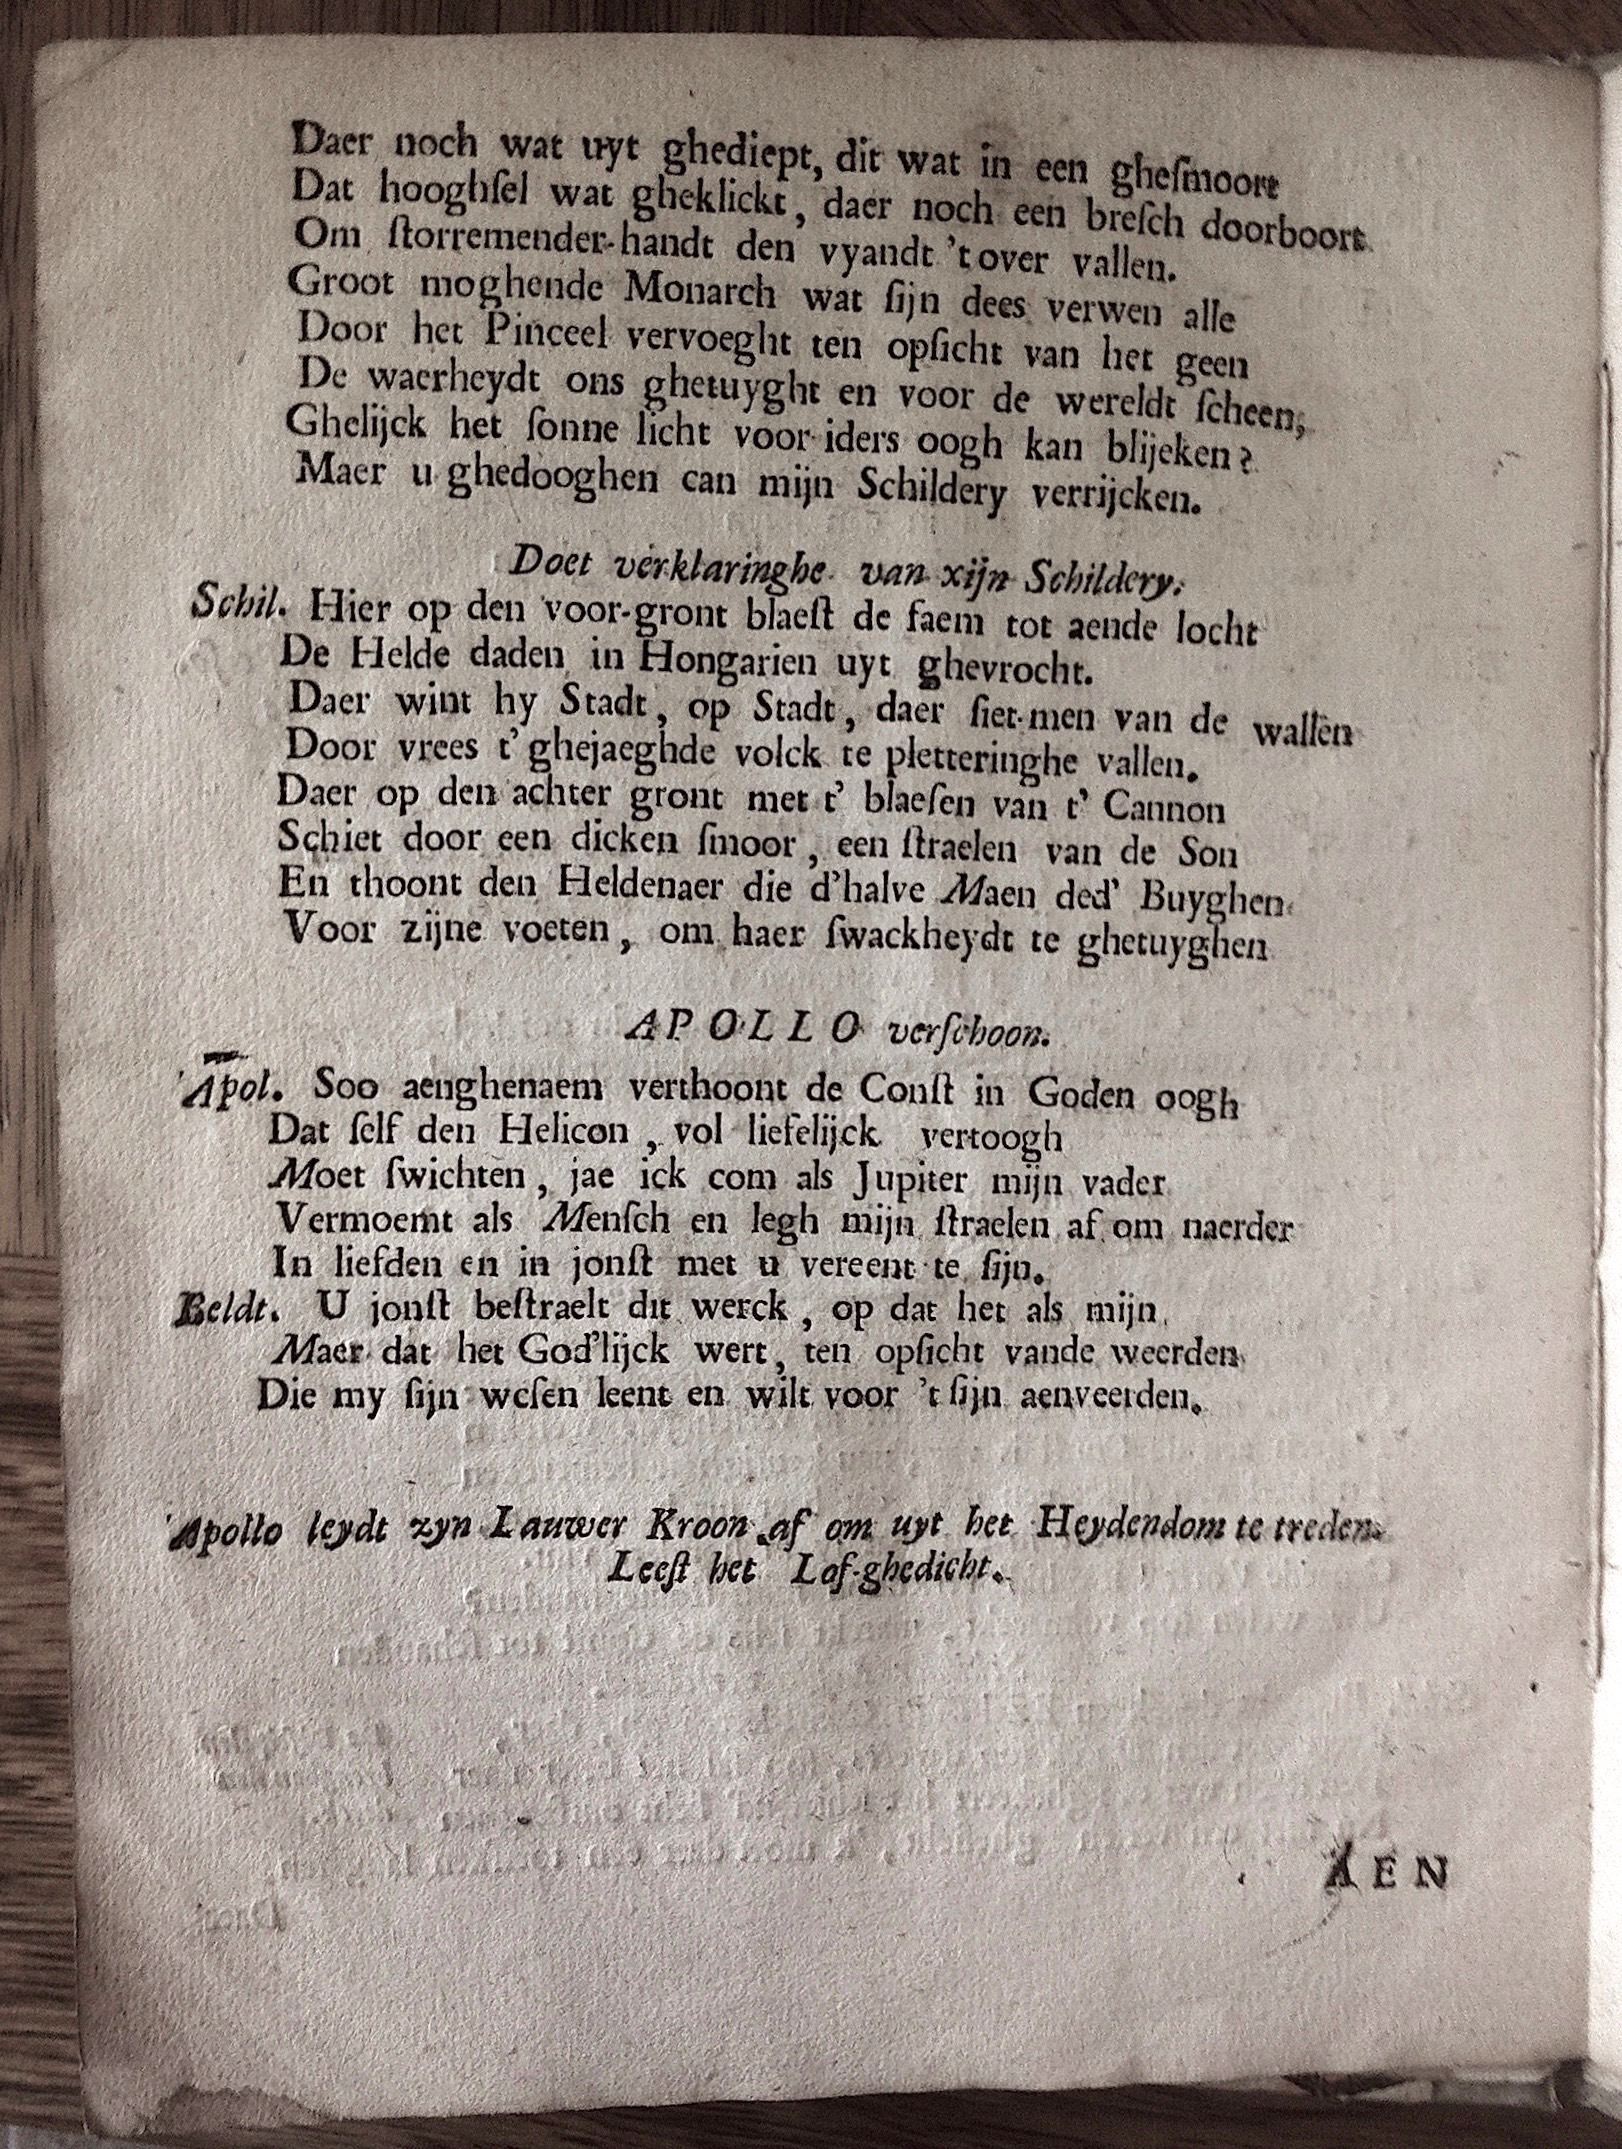 Daer noch wat uyt ghediept, dit wat in een gheſmoort
Dat hooghſel wat gheklickt, daer noch een breſch doorboort
Om ſtorremender-handt den vyandt 't over vallen.
Groot moghende Monarch wat ſijn dees verwen alle
Door het Pinceel vervoeght ten opſicht van het geen
De waerheydt ons ghetuyght en voor de wereldt ſcheen,
Ghelijck het ſonne licht voor iders oogh kan blijeken?
Maer u ghedooghen can mijn Schildery verrijcken.
Doet verklaringhe van xijn Schildery.
Schil. Hier op den voor-gront blaeſt de faem tot aende locht
De Helde daden in Hongarien uyt ghevrocht.
Daer wint hy Stadt, op Stadt, daer ſiet-men van de wallen
Door vrees t' ghejaeghde volck te pletteringhe vallen.
Daer op den achter gront met t' blaeſen van t' Cannon
Schiet door een dicken ſmoor, een ſtraelen van de Son
En thoont den Heldenaer die d'halve Maen ded' Buyghen
Voor zijne voeten, om haer ſwackheydt te ghetuyghen
APOLLO verſchoon.
Apol. Soo aenghenaem verthoont de Conſt in Goden oogh
Dat ſelf den Helicon, vol liefelijck vertoogh
Moet ſwichten, jae ick com als Jupiter mijn vader
Vermoemt als Menſch en legh mijn ſtraelen af om naerder
In liefden en in jonſt met u vereent te ſijn.
Beldt. U jonſt beſtraelt dit werck, op dat het als mijn
Maer dat het God'lijck wert, ten opſicht vande weerden
Die my ſijn weſen leent en wilt voor 't ſijn aenveerden.
Apollo leydt zyn Lauwer Kroon af om uyt het Heydendom te treden.
Leeſt het Lof-ghedicht.
AEN